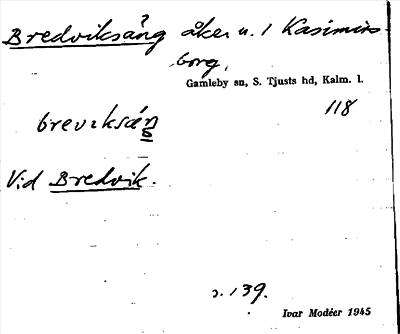 Bredviksäng åker u. 1 Kasimirs-
borg,
Gamleby sn, S. Tjusts hd, Kalm. l.
118
Vid Bredvik.
s. 139.
Ivar Modéer 1945